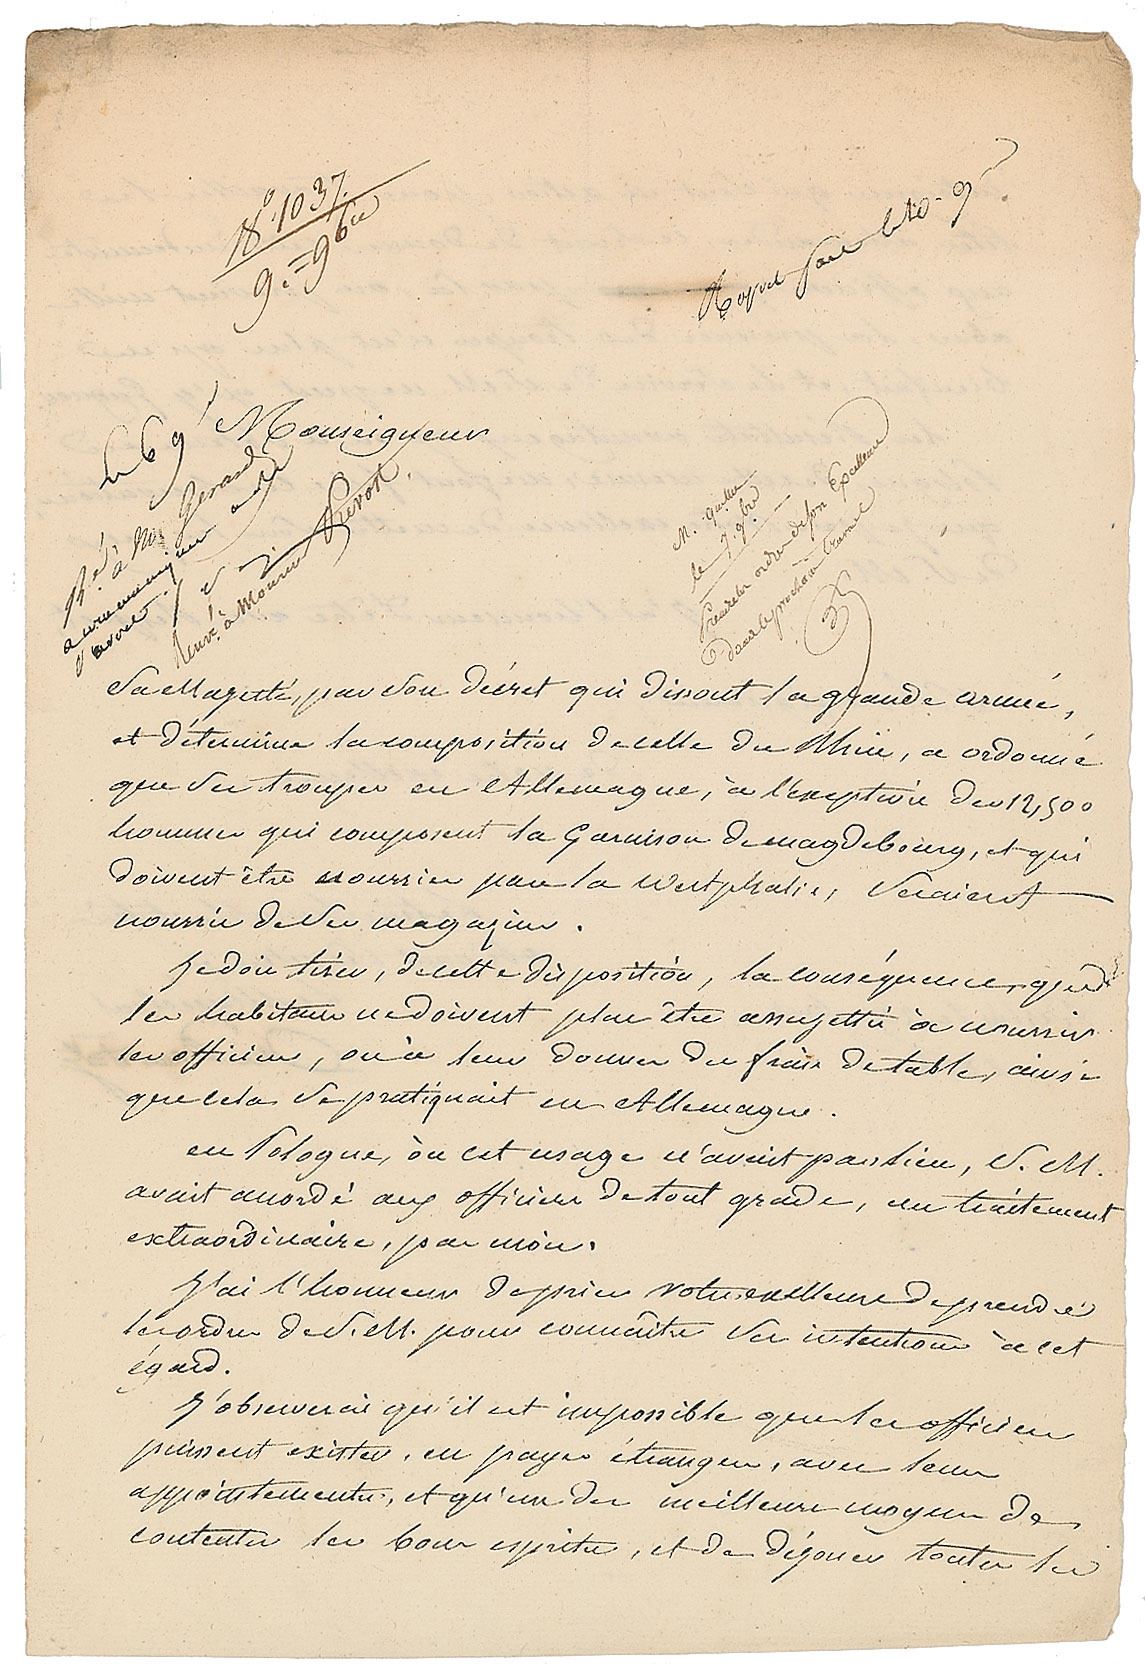 N.º 1037.
9.= 9bre
Rapport fait le 10. 9
Le 6 9
Monseigneur
R.é à M. Gerard
Renv. à Monsieur Prevost.
M.
le 7. 9bre
Prendre les ordres de son Excellence
dans le prochain travail
Sa Majesté, par son décret qui dissout la grande armée,
et détermine la composition de celle du Rhin, a ordonné
que ses troupes en Allemagne, à l'exception des 12,500
hommes qui composent la Garnison de magdebourg, et qui
doivent être nourries par la Westphalie, seraient
nourris de ses magazins.
Je dois tirer, de cette disposition, la conséquence, que
les habitans ne doivent plus être assujettis à nourrir
les officiers, ou à leur donner des frais de table, ainsi
que cela se pratiquait en Allemagne.
en Pologne, où cet usage n'avait pas lieu, S. M.
avait accordé aux officiers de tout grade, un traitement
extraordinaire, par mois.
J'ai l'honneur de prier votre excellence de prendre
les ordres de S. M. pour connaître ses intentions à cet
égard.
J'observerai qu'il est impossible que les officiers
puissent exister, en pays étranger, avec leurs
appointements, et qu'un des meilleurs moyens de
contenter les bons esprits, et de déjouer toutes les